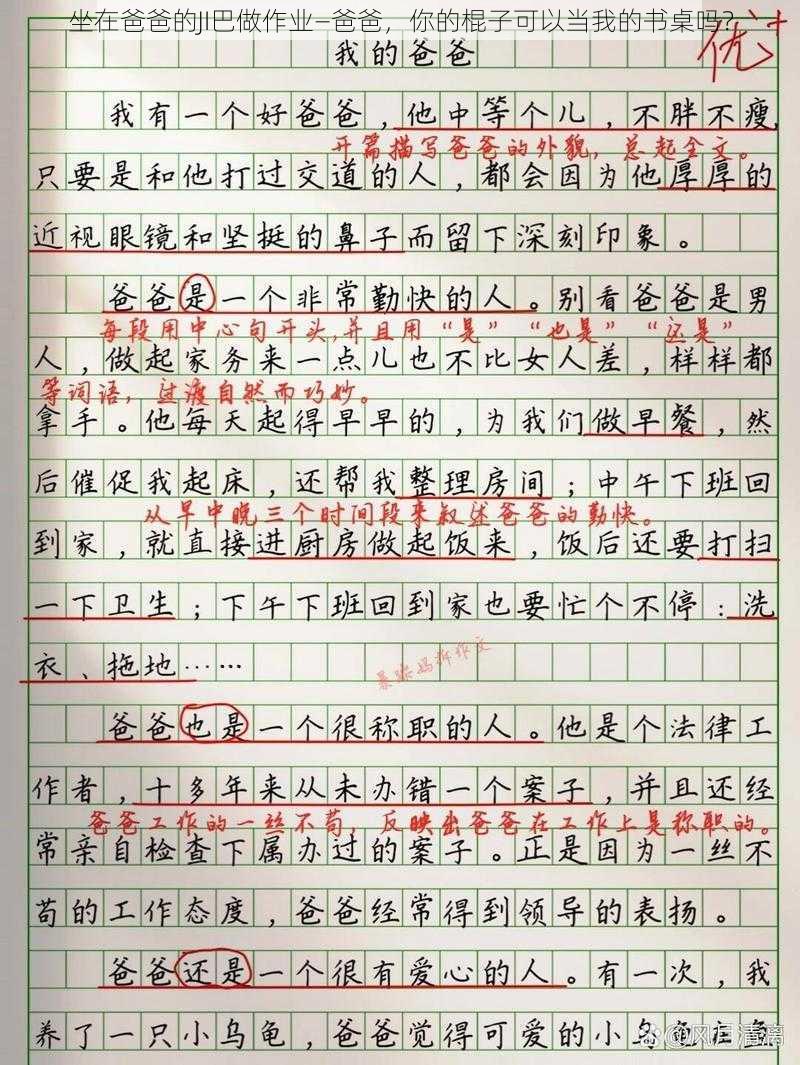 优+
我的爸爸
我有一个好爸爸，他中等个儿，不胖不瘦，
开篇描写爸爸的外貌，总起全文。
只要是和他打过交道的人，都会因为他厚厚的
近视眼镜和坚挺的鼻子而留下深刻印象。
爸爸是一个非常勤快的人。别看爸爸是男
每段用中心句开头,并且用“是”“也是”“还是”
人，做起家务来一点儿也不比女人差，样样都
等词语，过渡自然而巧妙。
拿手。他每天起得早早的，为我们做早餐，然
后催促我起床，还帮我整理房间；中午下班回
从早中晚三个时间段来叙述爸爸的勤快。
到家，就直接进厨房做起饭来，饭后还要打扫
一下卫生；下午下班回到家也要忙个不停：洗
衣、拖地……
爸爸也是一个很称职的人。他是个法律工
作者，十多年来从未办错一个案子，并且还经
爸爸工作的一丝不苟，反映出爸爸在工作上是称职的。
常亲自检查下属办过的案子。正是因为一丝不
苟的工作态度，爸爸经常得到领导的表扬。
爸爸还是一个很有爱心的人。有一次，我
养了一只小乌龟，爸爸觉得可爱的小乌龟在鱼
@风月清漓